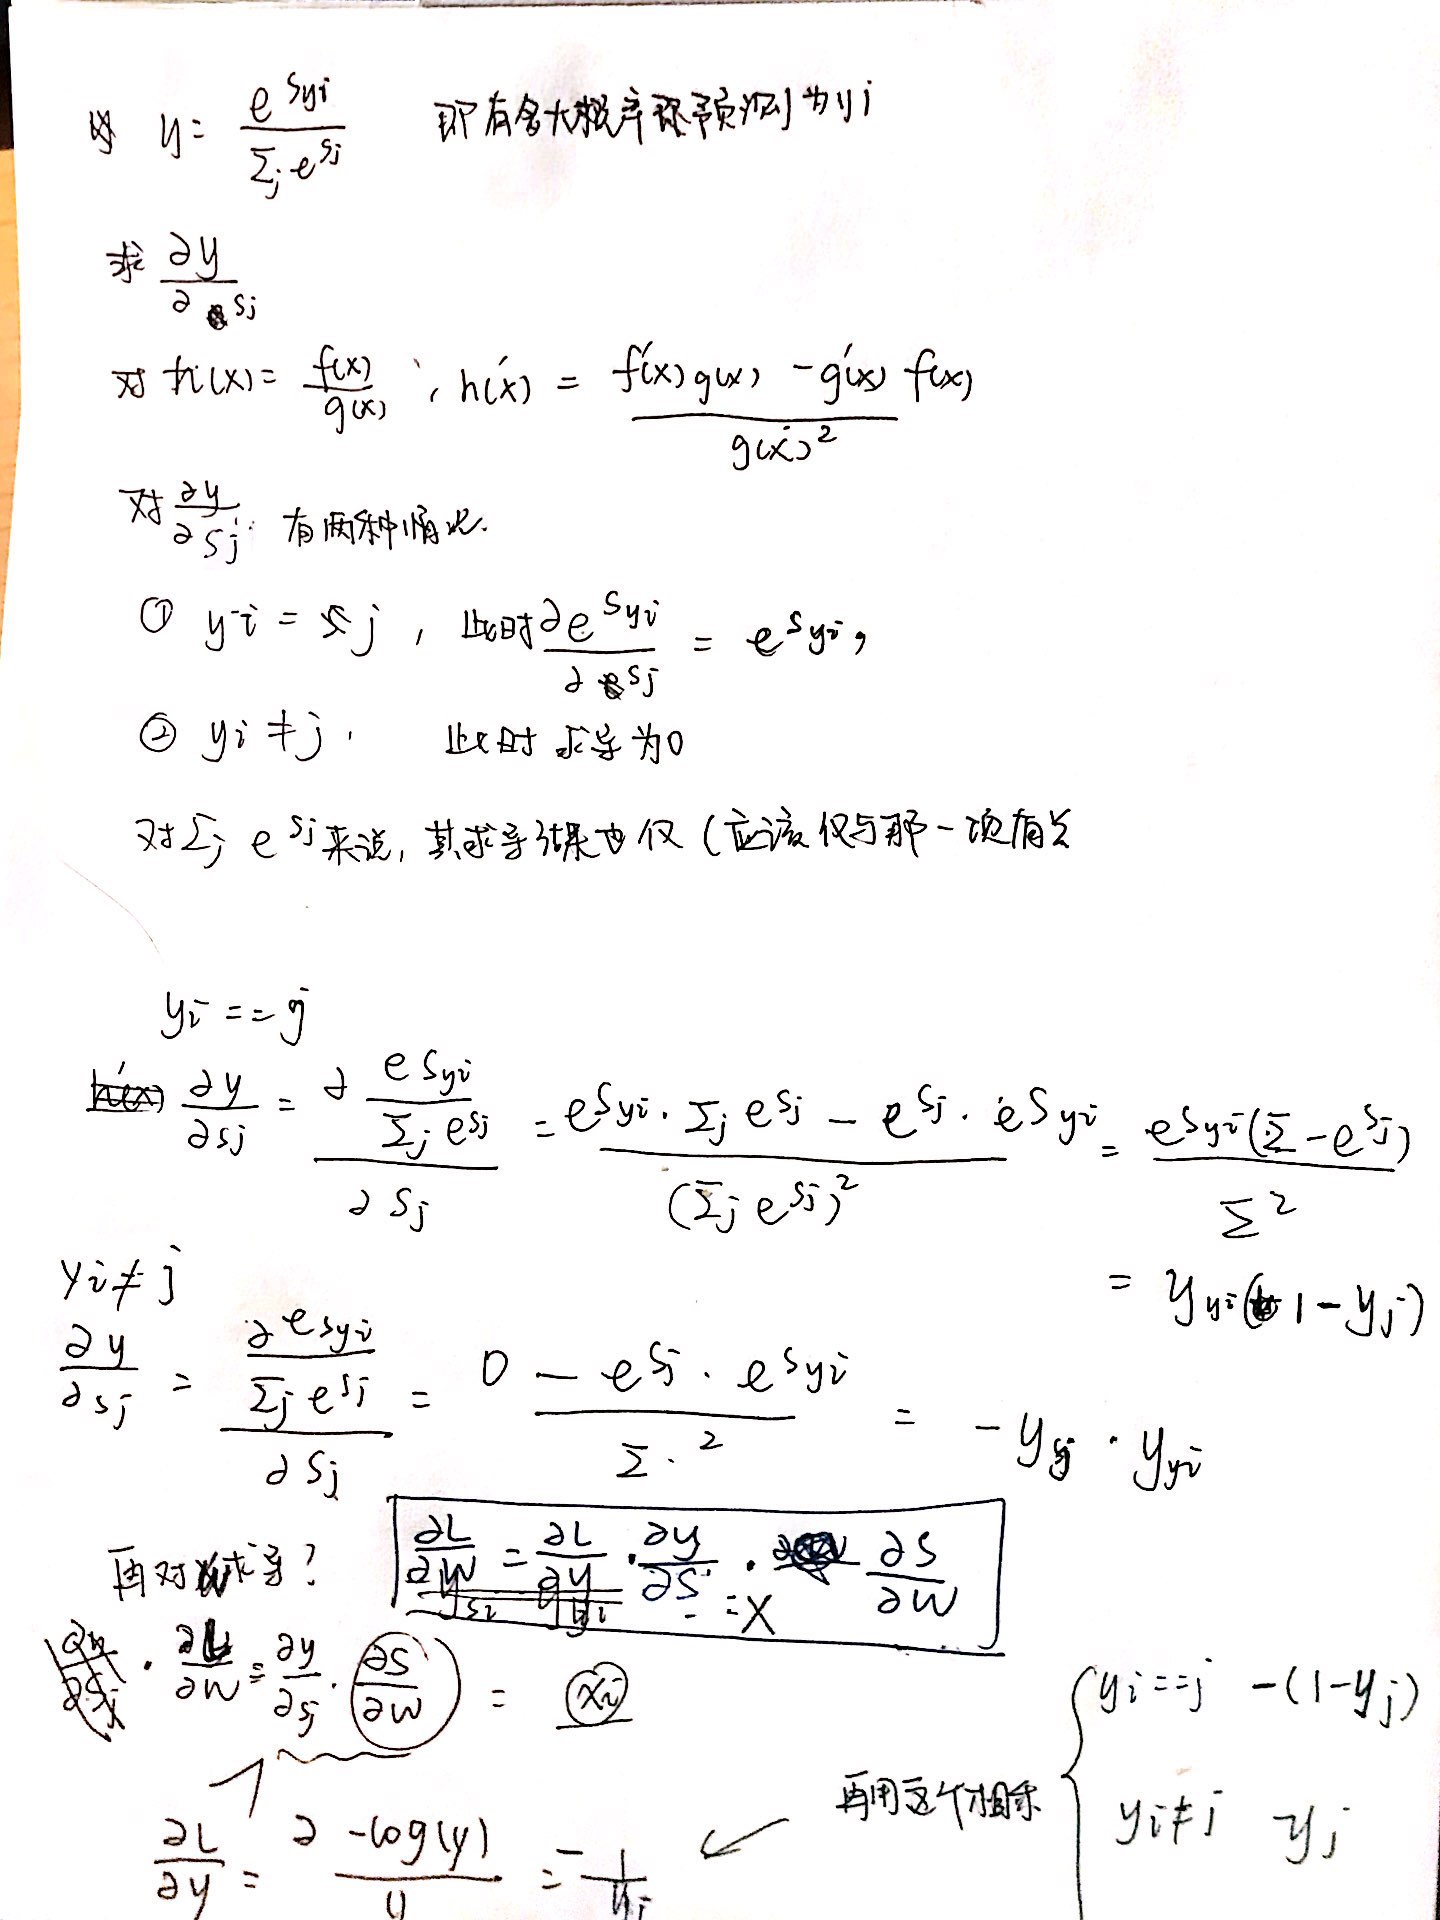 y = e^{s_{yi}} / Σ_j e^{s_j} 即有多大概率称预测为yi
求 ∂y / ∂s_j
对 h(x) = f(x) / g(x) , h'(x) = f'(x)g(x) - g'(x)f(x) / g(x)^2
对 ∂y / ∂s_j 有两种情况.
① yi = j , 此时 ∂e^{s_{yi}} / ∂s_j = e^{s_{yi}},
② yi ≠ j . 此时求导为0
对 Σ_j e^{s_j} 来说, 其求导结果也仅 (应该仅与那一项有关
yi == j
∂y / ∂s_j = ∂ (e^{s_{yi}} / Σ_j e^{s_j}) / ∂s_j = (e^{s_{yi}} · Σ_j e^{s_j} - e^{s_j} · e^{s_{yi}}) / (Σ_j e^{s_j})^2 = e^{s_{yi}}(Σ - e^{s_j}) / Σ^2
= y_{yi}(1 - y_j)
yi ≠ j
∂y / ∂s_j = ∂ (e^{s_{yi}} / Σ_j e^{s_j}) / ∂s_j = (0 - e^{s_j} · e^{s_{yi}}) / Σ^2 = - y_j · y_{yi}
再对W求导?
∂L / ∂W = ∂L / ∂y · ∂y / ∂s · ∂s / ∂W
= X
∂L / ∂W = ∂y / ∂s_j · ∂s / ∂W = x_i
∂L / ∂y = ∂ -log(y) / y = - 1 / y_j
再用这个相乘
yi == j -(1-y_j)
yi ≠ j y_j